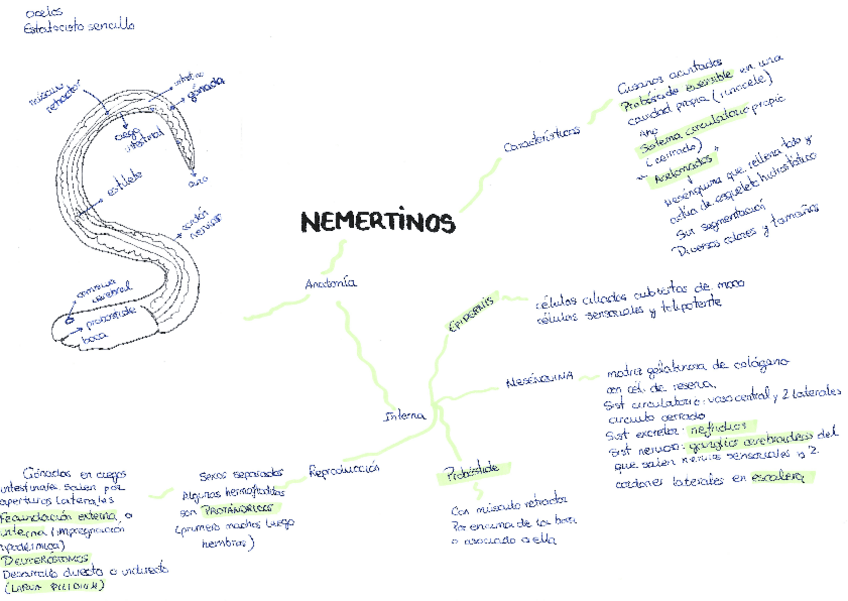 ocelos
Estatocisto sencillo
músculo
retractor
gónada
ciego
intestinal
estilete
ano
cordón
nervioso
cerebral
proboscide
boca
NEMERTINOS
Características
Gusanos acintados
Probóscide eversible en una
cavidad propia (rincocele)
Ano
Sistema circulatorio propio
(cerrado)
"Acelomados"
Mesénquima que rellena todo y
actúa de esqueleto hidrostático
Sin segmentación
Diversos colores y tamaños
Anatomía
EPIDERMIS
células ciliadas cubiertas de moco
células sensoriales y totipotente
MESÉNQUIMA
matriz gelatinosa de colágeno
con cél. de reserva.
Sist circulatorio: vaso central y 2 laterales
circuito cerrado
Sist excretor: nefridios
Sist nervioso: ganglios cerebroideos del
que salen nervios sensoriales y 2
cordones laterales en escalera
Interna
Probóscide
Con músculo retractor
Por encima de la boca
o asociado a ella
Reproducción
Sexos separados
Algunas hermafroditas
son PROTÁNDRICOS
(primero machos luego
hembras)
Gónadas en ciegos
intestinales salen por
aperturas laterales
Fecundación externa o
interna (impregnación
hipodérmica)
DEUTERÓSTOMOS
Desarrollo directo o indirecto
(LARVA PILIDIUM)